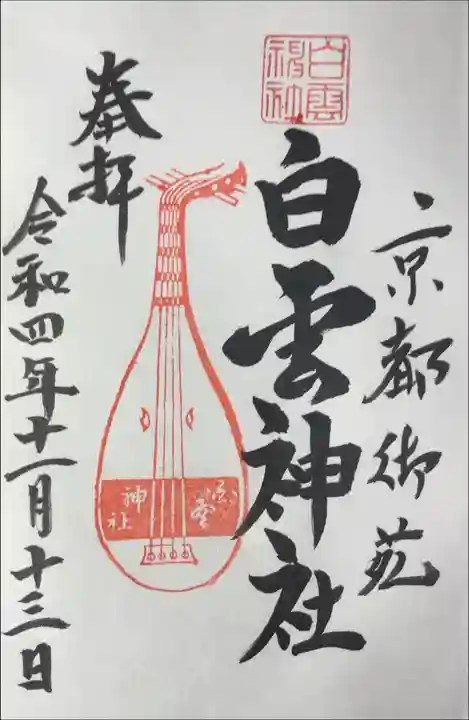 京都御苑
白雲神社
白雲神社
神社
奉拝
令和四年十一月十三日